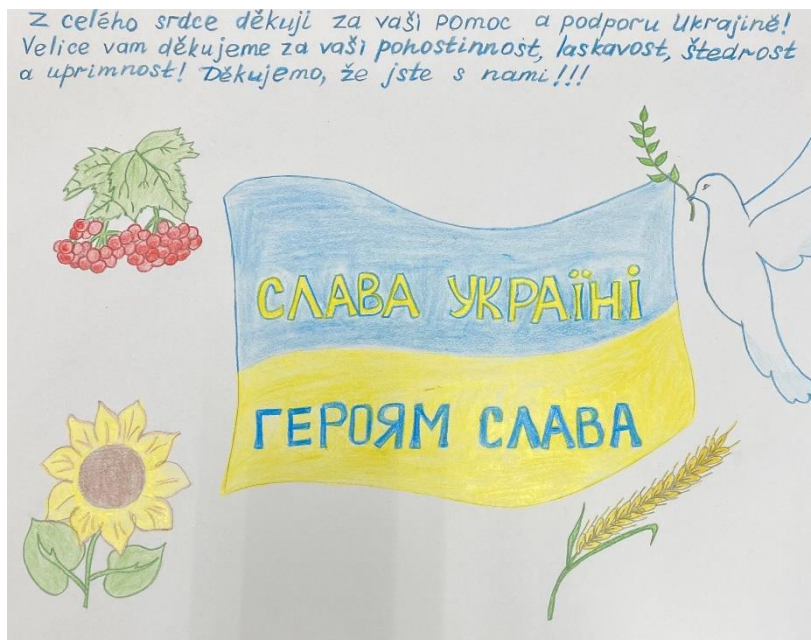 Z celého srdce děkuji za vaši pomoc a podporu Ukrajině!
Velice vam děkujeme za vaši pohostinnost, laskavost, štedrost
a uprimnost! Děkujemo, že jste s nami!!!
СЛАВА УКРАЇНІ
ГЕРОЯМ СЛАВА